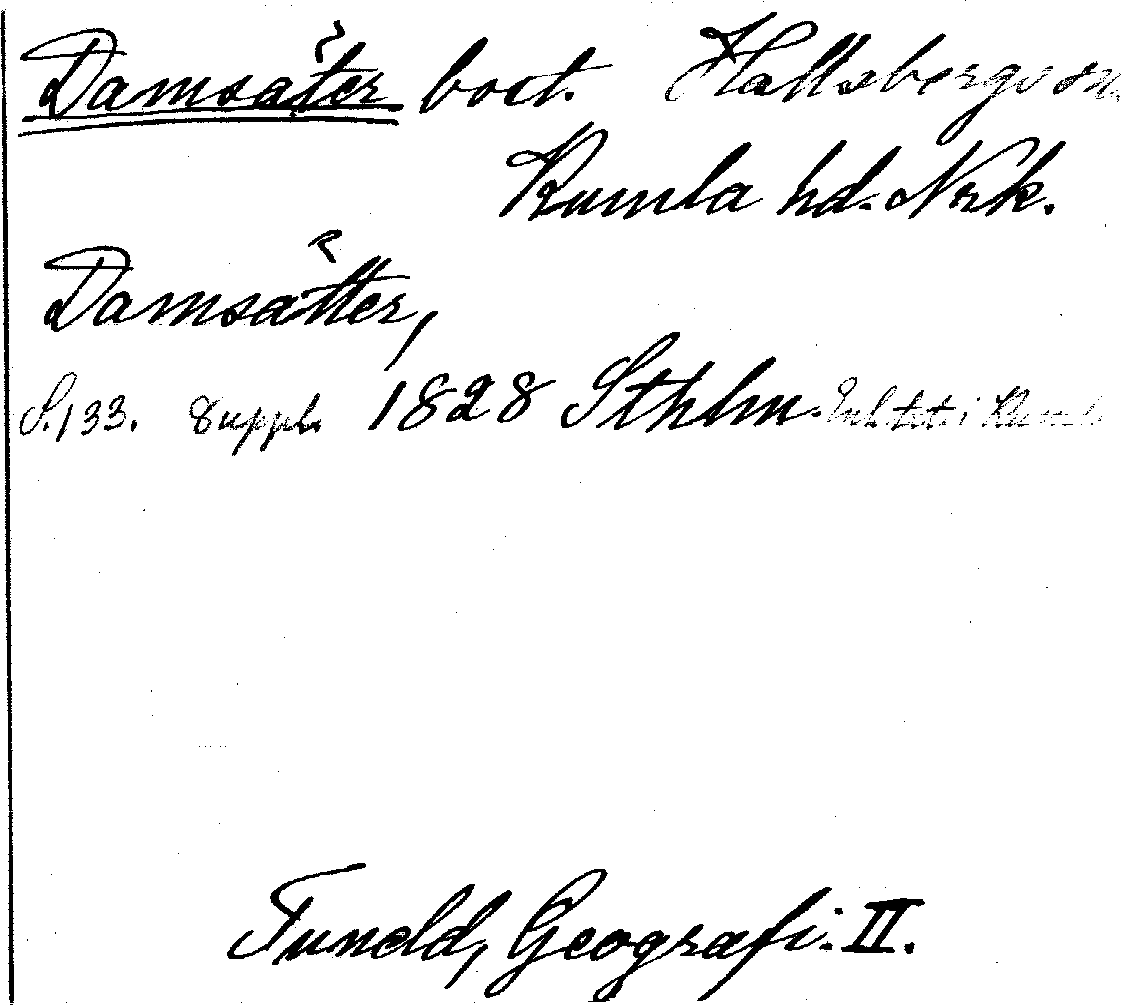 Damsäter bost. Hallsbergs sn.
Kumla hd. Nrk.
Damsätter,
S. 133. Suppl. 1828 Sthlm.
Tuneld, Geografi. II.